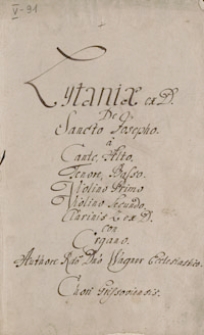 V-31
Lytaniæ ex D.
De S.
Sancto Josepho.
à
Canto, Alto,
Tenore, Basso.
Violino Primo
Violino Secundo.
Clarinis 2 ex D.
con
Organo.
Authore Rdo Dno Wagner
Chori